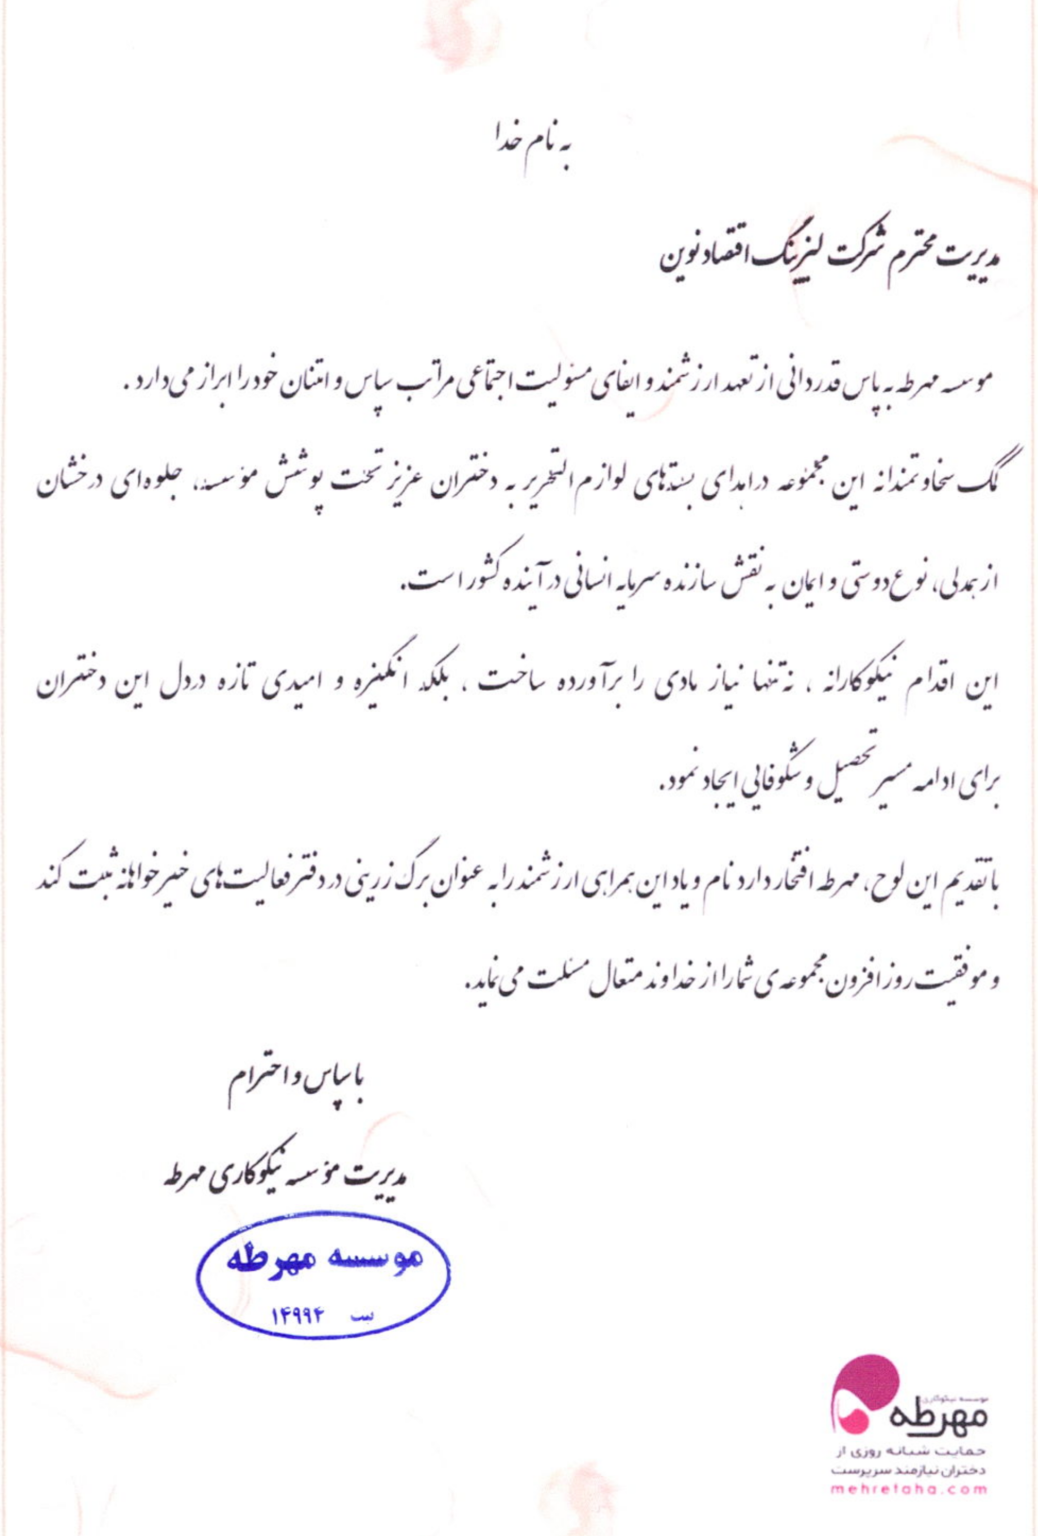 به نام خدا
مدیریت محترم شرکت لیزینگ اقتصاد نوین
موسسه مهرطه به پاس قدردانی از تعهد ارزشمند و ایفای مسئولیت اجتماعی مراتب سپاس و امتنان خود را ابراز می‌دارد .
کمک سخاوتمندانه این مجموعه در اهدای بسته‌های لوازم التحریر به دختران عزیز تحت پوشش مؤسسه، جلوه‌ای درخشان
از همدلی، نوع‌دوستی و ایمان به نقش سازنده سرمایه انسانی در آینده کشور است.
این اقدام نیکوکارانه ، نه تنها نیاز مادی را برآورده ساخت ، بلکه انگیزه و امیدی تازه در دل این دختران
برای ادامه مسیر تحصیل و شکوفایی ایجاد نمود.
با تقدیم این لوح، مهرطه افتخار دارد نام و یاد این همراهی ارزشمند را به عنوان برگ زرینی در دفتر فعالیت‌های خیرخواهانه ثبت کند
و موفقیت روز افزون مجموعه‌ی شما را از خداوند متعال مسئلت می‌نماید.
با سپاس و احترام
مدیریت مؤسسه نیکوکاری مهرطه
موسسه مهرطه
ثبت ۱۴۹۹۴
موسسه نیکوکاری
مهرطه
حمایت شبانه روزی از
دختران نیازمند سرپرست
mehretaha.com